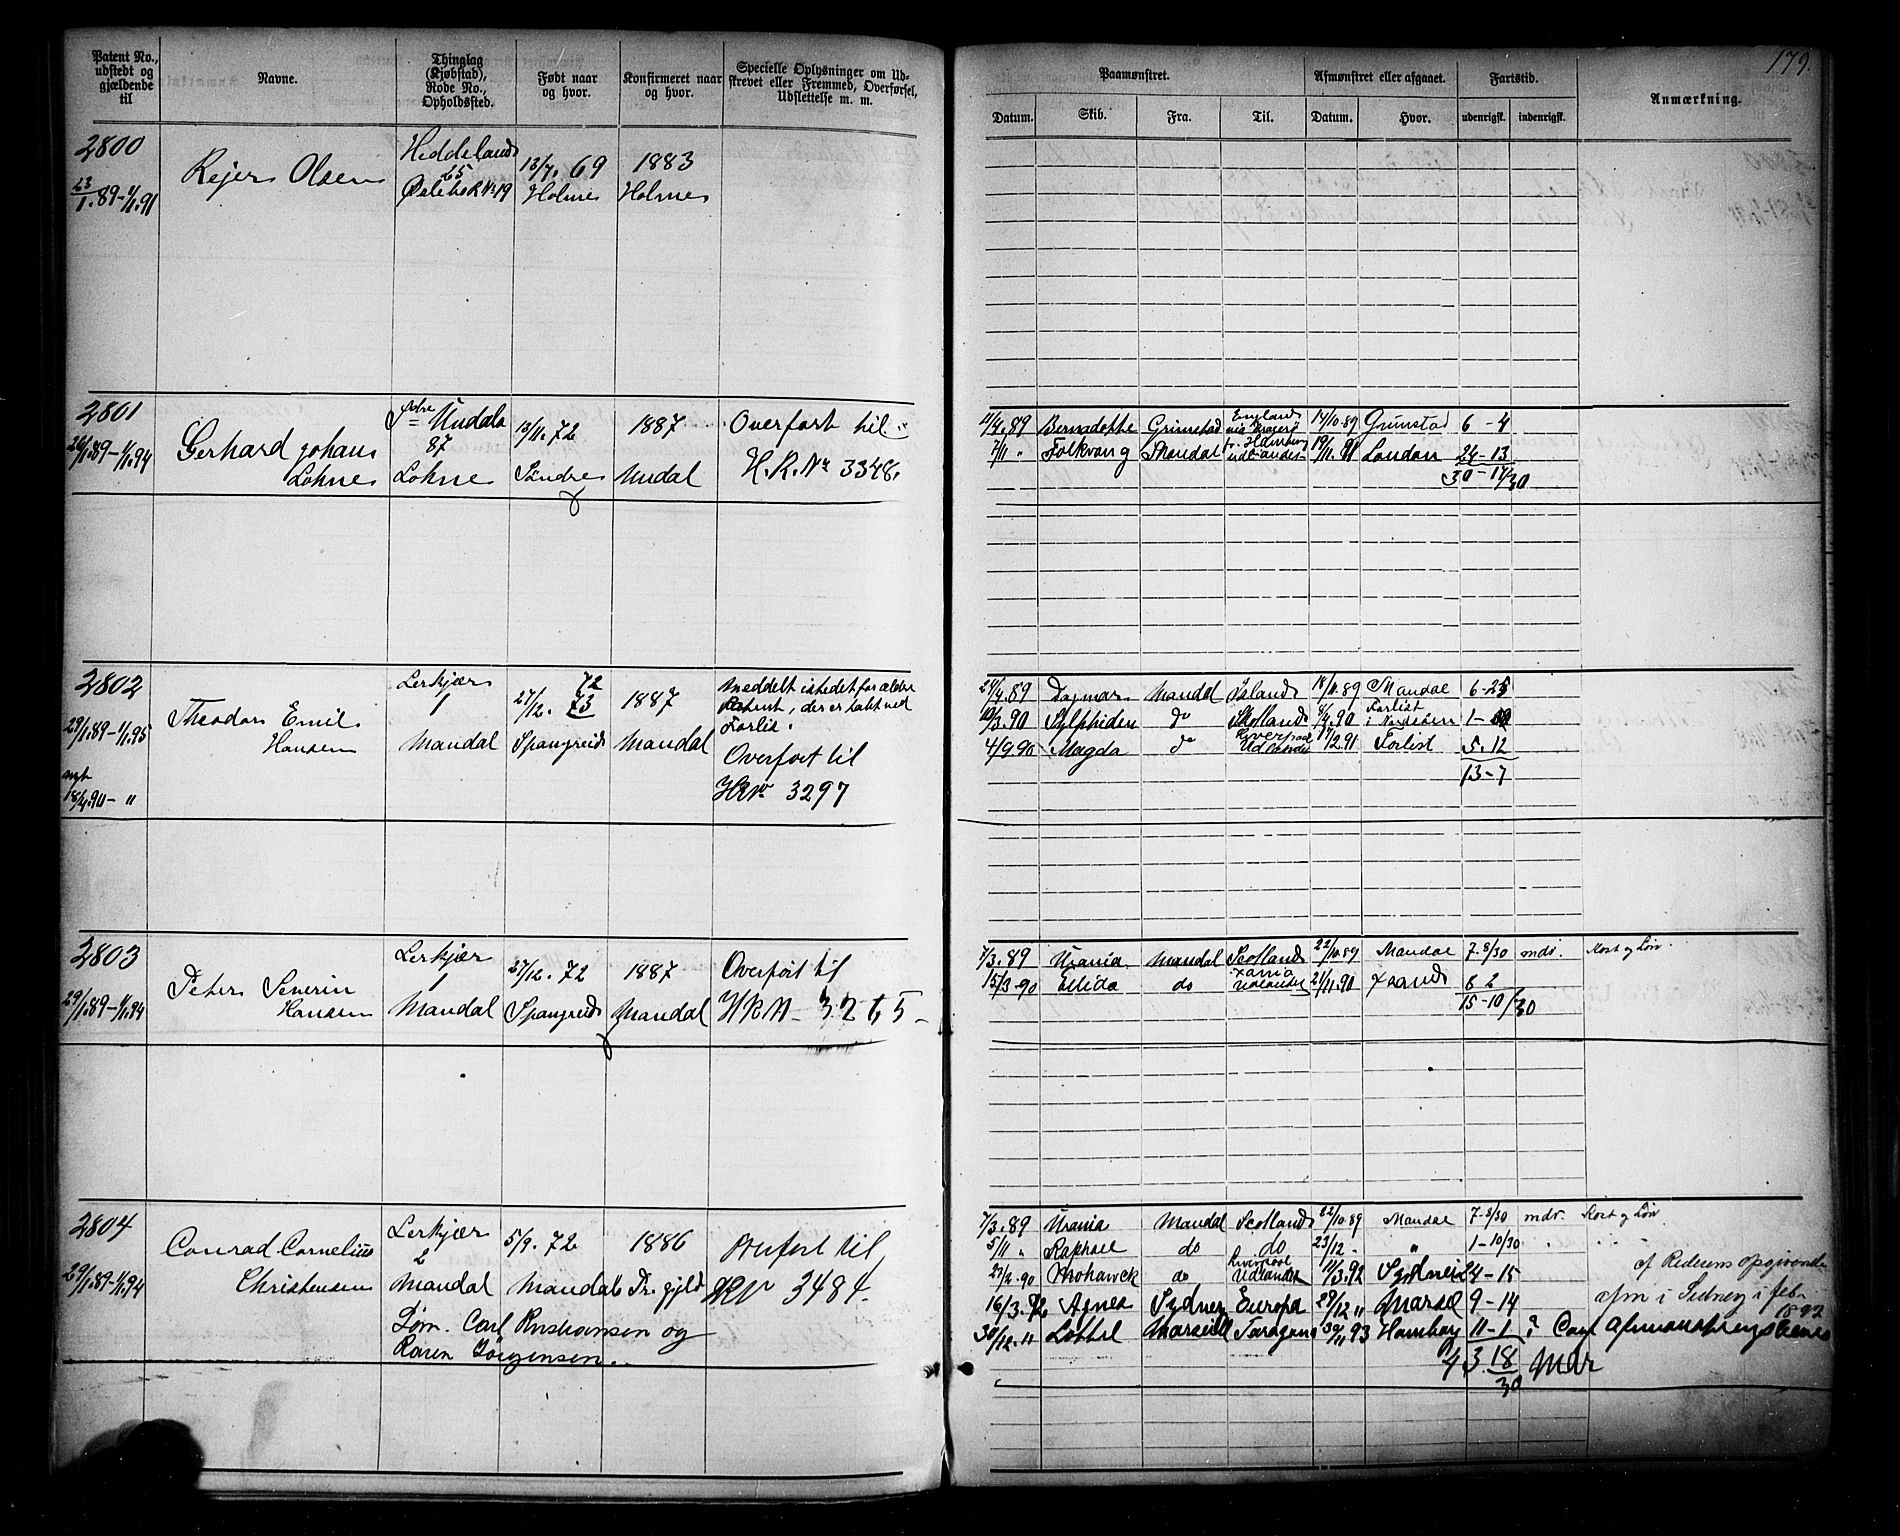 179.
Patent No., udstedt og gjældende til
Navne.
Thinglag (Kjøbstad), Rode No., Opholdssted.
Født naar og hvor.
Konfirmeret naar og hvor.
Specielle Oplysninger om Udskrevet eller Fremmed, Overførsel, Udslettelse m. m.
Paamønstret.
Afmønstret eller afgaaet.
Fartstid.
Anmærkning.
Datum.
Skib.
Fra.
Til.
Datum.
Hvor.
udenrigsk.
indenrigsk.
2800
23/1.89-1/1.91
Rejer Olsen
Heddeland
65
13/7. 69
Holme
1883
Holme
2801
26/1.89-1/1.94
Gerhard Johan
Løhne
Søndre Undals
87
Løhne
13/11.72
Søndre
1887
Undal
Overført til
H.R.Nr 3348.
11/4.89 Bernadotte Grimstad England 14/10.89 Grimstad 6-4
7/11 " Folkvang Mandal Udlandet 19/11.91 London 24-13
30-17/30
2802
29/1.89-1/1.95
18/4.90- "
Theodor Emil
Hansen
Lerkjær
1
Mandal
27/12. 73
72
Spangreid
1887
Mandal
Meddelt istedet for ældre
Patent, der er tabt ved
Forlis.
Overført til
HRNo 3297
24/4.89 Dagmar Mandal Island 18/11.89 Mandal 6-25
10/3.90 Sylphiden do Skotland 8/4.90 Forlist i Nordsøen 1-
4/9 90 Magda do Liverpool Udlandet 17/2 91 Forlist 5.12
13-7
2803
29/1.89-1/1.94
Peter Severin
Hansen
Lerkjær
1
Mandal
27/12. 72
Spangreid
1887
Mandal
Overført til
HRN- 3265-
7/3.89 Urania Mandal Scotland 22/10.89 Mandal 7-8/30 mdr. Kost og Løn
15/3-90 Elida do Udlandet 21/11.90 8 2
15-10/30
2804
29/1.89-1/1.94
Conrad Cornelius
Christensen
Lerkjær
2
Mandal
5/9. 72
Mandal
1886
Tr. gjld
Overført til
HRN 3484.
Søn. Carl Kristiansen og
Karen Jörgensen.
7/3.89 Urania Mandal Scotland 22/10.89 Mandal 7-8/30 mdr. Kost og Løn
5/11 " Raphael do do 23/12 - " 1-10/30
27/2-90 Mohawck do Liverpool Udlandet 11/3.92 Sydnei 24-15 af Rederens opgivende
16/3.92 Agnes Sydney Europa 29/12 " Marse 9-14 afm i Sidney i feb 1892
30/12." Lottel Marseill 30/11 93 Hamborg 11-1
43 18/30 Mdr